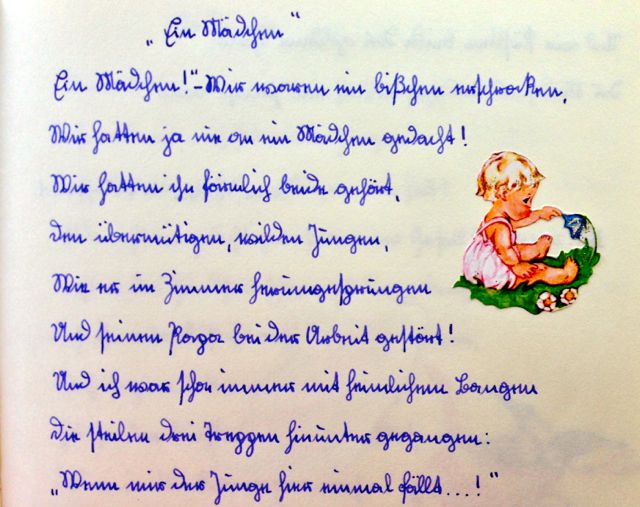 „Ein Mädchen“
Ein Mädchen!“ – Wir waren ein bißchen erschrocken,
Wir hatten ja nie an ein Mädchen gedacht!
Wir hatten ihn förmlich beide gehört,
den übermütigen, wilden Jungen,
Wie er im Zimmer herumgesprungen
Und seinen Papa bei der Arbeit gestört!
Und ich war schon immer mit heimlichem Bangen
die steilen drei Treppen hinunter gegangen:
„Wenn mir der Junge hier einmal fällt...!“